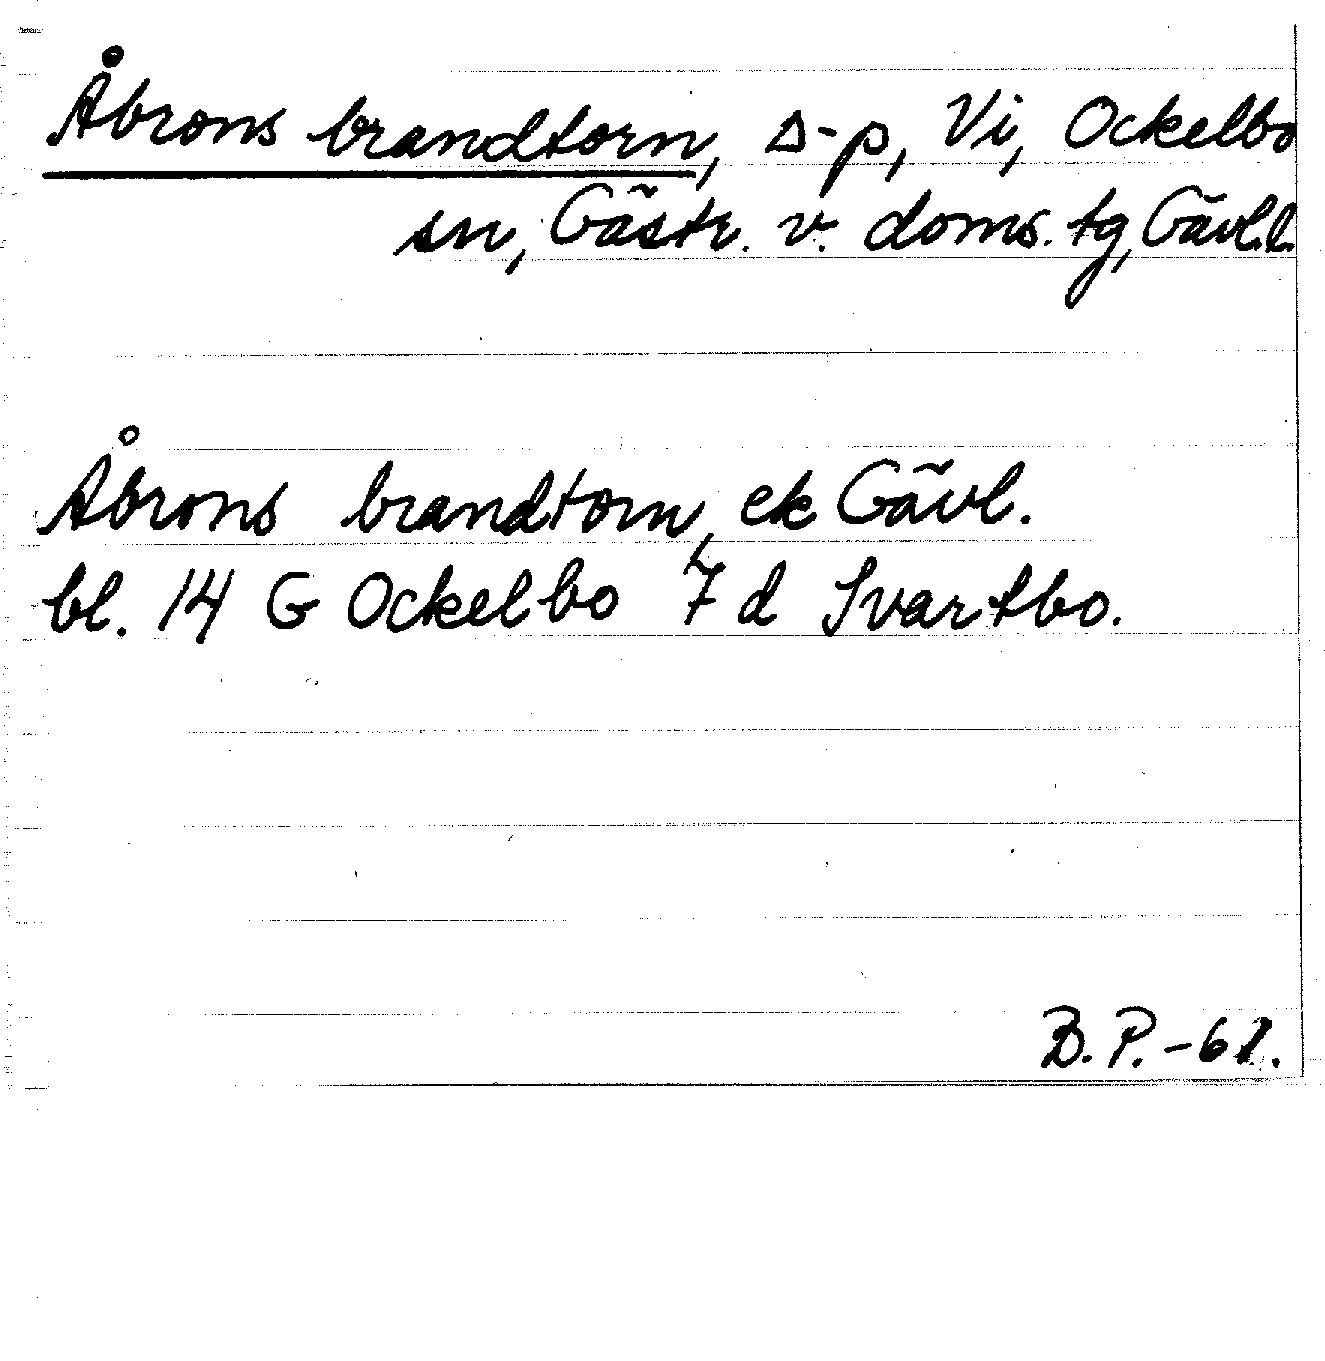 Åbrons brandtorn, Δ-p, Vi, Ockelbo
sn, Gästr. v. doms. tg, Gävl.l.
Åbrons brandtorn, ek Gävl.
bl. 14 G Ockelbo 7 d Svartbo.
B. P. -61.